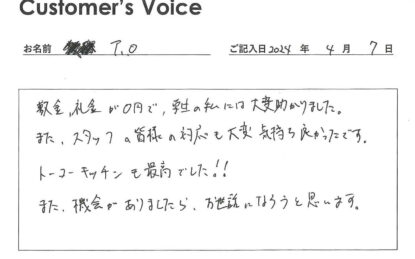 Customer's Voice
お名前 T.O ご記入日2024年4月7日
敷金,礼金が0円で,学生の私には大変助かりました。
また、スタッフの皆様の対応も大変気持ち良かったです。
トーコーキッチンも最高でした!!
また、機会がありましたら、お世話になろうと思います。